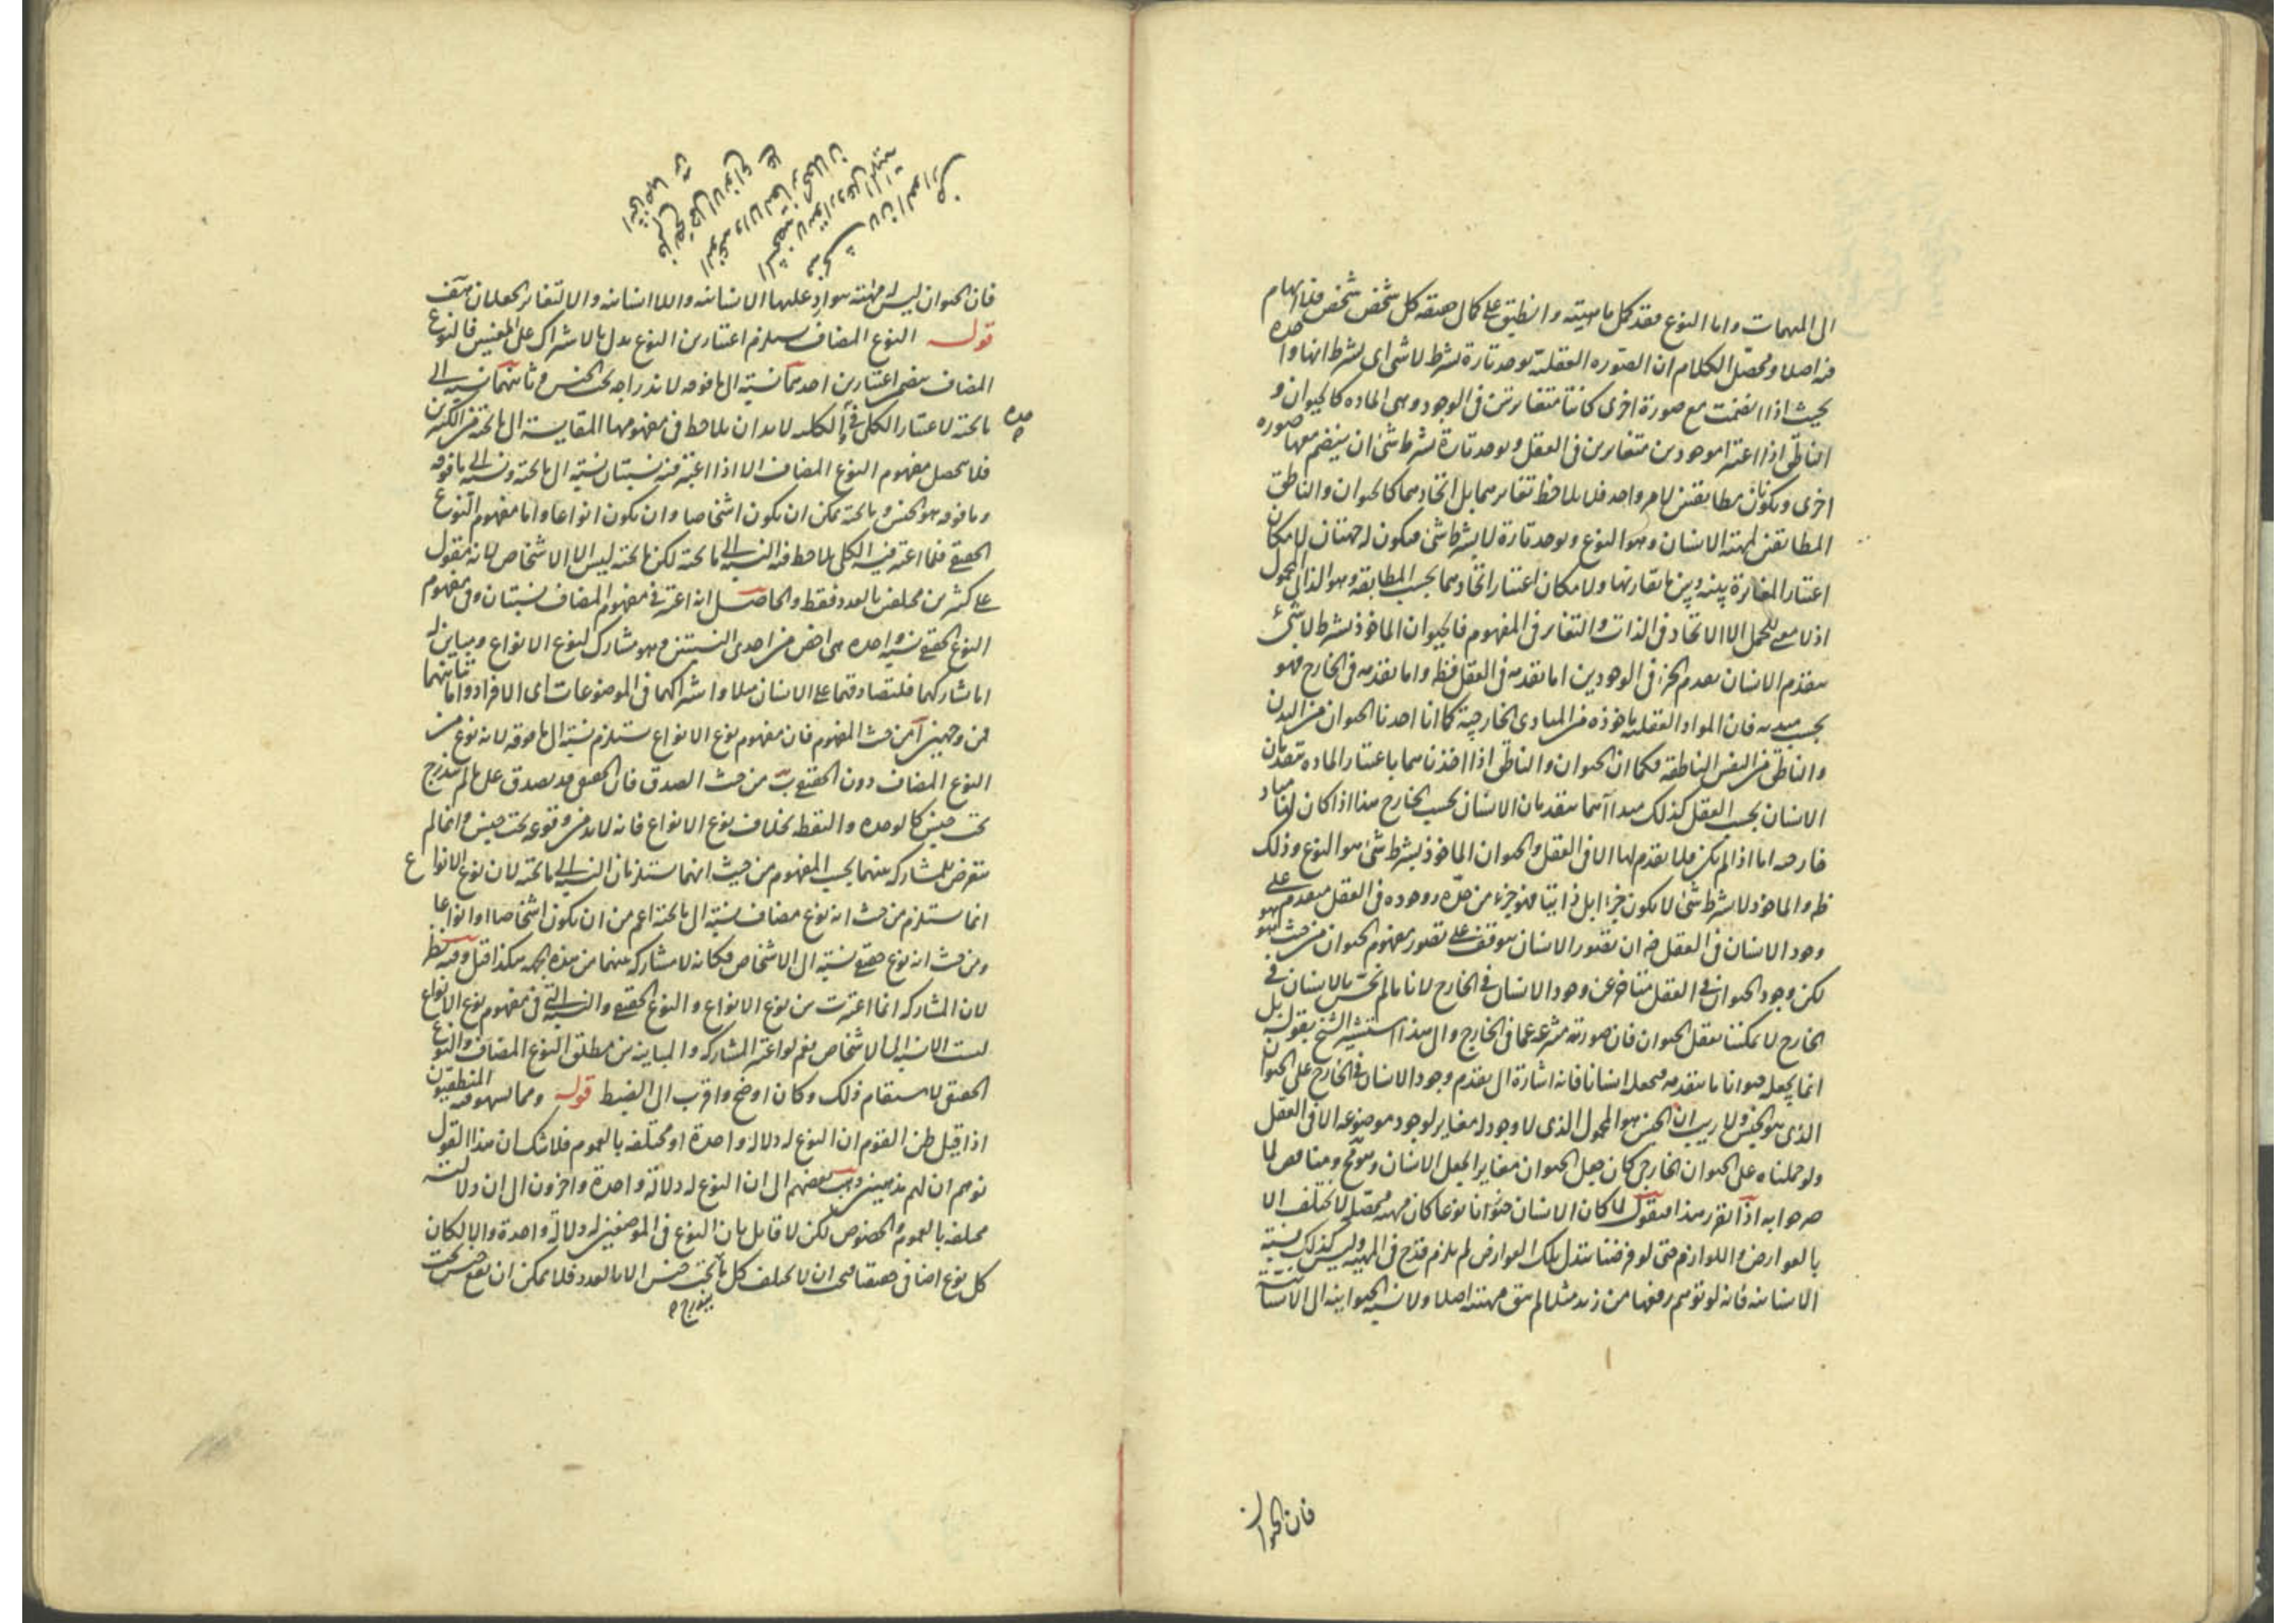 الى المبهمات واما النوع فقد كمل ماهيته وانطبق على كمال حقيقة كل شخص شخص فلا ابهام
فيه اصلا ومحصل الكلام ان الصورة العقلية يوجد تارة بشرط لا شئ اى بشرط انها وحده
بحيث اذا انضمت مع صورة اخرى كانتا متغايرتين فى الوجود وهى المادة كالحيوان و
الناطق اذا اعتبرا موجودين متغايرين فى العقل ويوجد تارة بشرط شئ ان ينضم معها صورة
اخرى ويكونان مطابقتين لامر واحد فلا يلاحظ تغايرهما بل اتحادهما كالحيوان والناطق
المطابقين لمهية الانسان وهو النوع ويوجد تارة لا بشرط شئ فيكون له جهتان لامكان
اعتبار المغايرة بينه وبين ما يقارنها ولامكان اعتبار اتحادهما بحسب المطابقة وهو الذاتى المحمول
اذ لا معنى للحمل الا الاتحاد فى الذات والتغاير فى المفهوم فالحيوان الماخوذ بشرط لا شئ
يتقدم الانسان تقدم الجزء فى الوجودين اما تقدمه فى العقل فظ واما تقدمه فى الخارج فهو
بحسب مبدئه فان المواد العقلية ماخوذة من المبادى الخارجية كما انا اخذنا الحيوان من البدن
والناطق من النفس الناطقة فكما ان الحيوان والناطق اذا اخذناهما باعتبار المادة متقدمان
الانسان بحسب العقل كذلك مبداآهما متقدمان الانسان بحسب الخارج هذا اذا كان لها مباد
خارجية اما اذا لم يكن فلا تقدم لها الا فى العقل والحيوان الماخوذ بشرط شئ هو النوع وذلك
ظ والماخوذ لا بشرط شئ لا يكون جزءا بل ذاتيا فهو جزء من حده ووجوده فى العقل متقدم على
وجود الانسان فى العقل ضرورة ان تصور الانسان موقوف على تصور مفهوم الحيوان من حيث هو هو
لكن وجود الحيوان فى العقل متاخر عن وجود الانسان فى الخارج لانا ما لم نحس بالانسان فى
الخارج لا يمكننا تعقل الحيوان فان صورته منتزعة عما فى الخارج والى هذا استشير الشيخ بقوله بل
انما يجعله حيوانا ما يتقدمه فيجعله انسانا فانه اشارة الى تقدم وجود الانسان فى الخارج على الحيوان
الذى هو الجنس ولا ريب ان الجنس هو المحمول الذى لا وجود له مغاير لوجود موضوعه الا فى العقل
ولو حملناه على الحيوان الخارجى كان جعل الحيوان مغايرا لجعل الانسان وهو قبح ومناقض لما
صرحوا به اذا تقرر هذا فنقول لما كان الانسان حيوانا نوعا كان مهيته محصلة لا تختلف الا
بالعوارض واللوازم حتى لو فرضنا تبدل تلك العوارض لم يلزم قدح فى المهية وليس كذلك نسبة
الانسانية فانه لو توهم رفعها من زيد مثلا لم يبق مهيته اصلا ولا نسبة الحيوانية الى الانسانية
فان الحيوان
فان الحيوان ليس له مهية يتوارد عليها الانسانية واللاانسانية والا لتغاير الجعلان هف
قوله النوع المضاف يستلزم اعتبارين النوع يدل بالاشتراك على المعنيين فالنوع
المضاف يتضمن اعتبارين احدهما نسبته الى ما فوقه لاندراجه تحت الجنس وثانيهما نسبته الى
ما تحته لاعتبار الكلى فى حده والكلية لا بد ان يلاحظ فى مفهومها المقايسة الى ما تحته من الكثيرين
فلا يتحصل مفهوم النوع المضاف الا اذا اعتبر فيه نسبتان نسبة الى ما تحته ونسبة الى ما فوقه
وما فوقه هو الجنس وما تحته يمكن ان يكون اشخاصا وان يكون انواعا واما مفهوم النوع
الحقيقى فلما اعتبر فيه الكلى يلاحظ فيه النسبة الى ما تحته لكن ما تحته ليس الا الاشخاص لانه مقول
على كثيرين مختلفين بالعدد فقط والحاصل انه اعتبر فى مفهوم المضاف نسبتان وفى مفهوم
النوع الحقيقى نسبة واحدة هى اخص من احدى النسبتين وهو مشارك لنوع الانواع ومباين له
اما مشاركتهما فلتصادقهما على الانسان مثلا واشتراكهما فى الموضوعات اى الافراد واما تباينهما
فمن وجهين آ من حيث المفهوم فان مفهوم نوع الانواع يستلزم نسبته الى ما فوقه لانه نوع من
النوع المضاف دون الحقيقى ب من حيث الصدق فان الحقيقى قد يصدق على ما لم يندرج
تحت جنس كالوحدة والنقطة بخلاف نوع الانواع فانه لا بد من وقوعه تحت جنس وانما لم
يتعرض للمشاركة بينهما بحسب المفهوم من حيث انهما يستلزمان النسبة الى ما تحته لان نوع الانواع
انما يستلزم من حيث انه نوع مضاف نسبته الى ما تحته اعم من ان يكون اشخاصا او انواعا
ومن حيث انه نوع حقيقى نسبته الى الاشخاص فكانه لا مشاركة بينهما من هذه الجهة هكذا قيل وفيه نظر
لان المشاركة انما اعتبرت بين نوع الانواع والنوع الحقيقى والنسبة التى فى مفهوم نوع الانواع
ليست الا نسبة الى الاشخاص نعم لو اعتبر المشاركة والمباينة بين مطلق النوع المضاف والنوع
الحقيقى لاستقام ذلك وكان اوضح واقرب الى الضبط قوله ومما يسهو فيه المنطقيون
اذا قيل ظن القوم ان النوع له دلالة واحدة او مختلفة بالعموم فلا شك ان هذا القول
يوهم ان لهم مذهبين ذهب بعضهم الى ان النوع له دلالة واحدة واخرون الى ان دلالته
مختلفة بالعموم والخصوص لكن لا قايل بان النوع فى الموضعين له دلالة واحدة والا لكان
كل نوع اضافى حقيقيا فيجب ان لا يختلف كل ما تحت جنس الا بالعدد فلا يمكن ان يقع جنس تحت